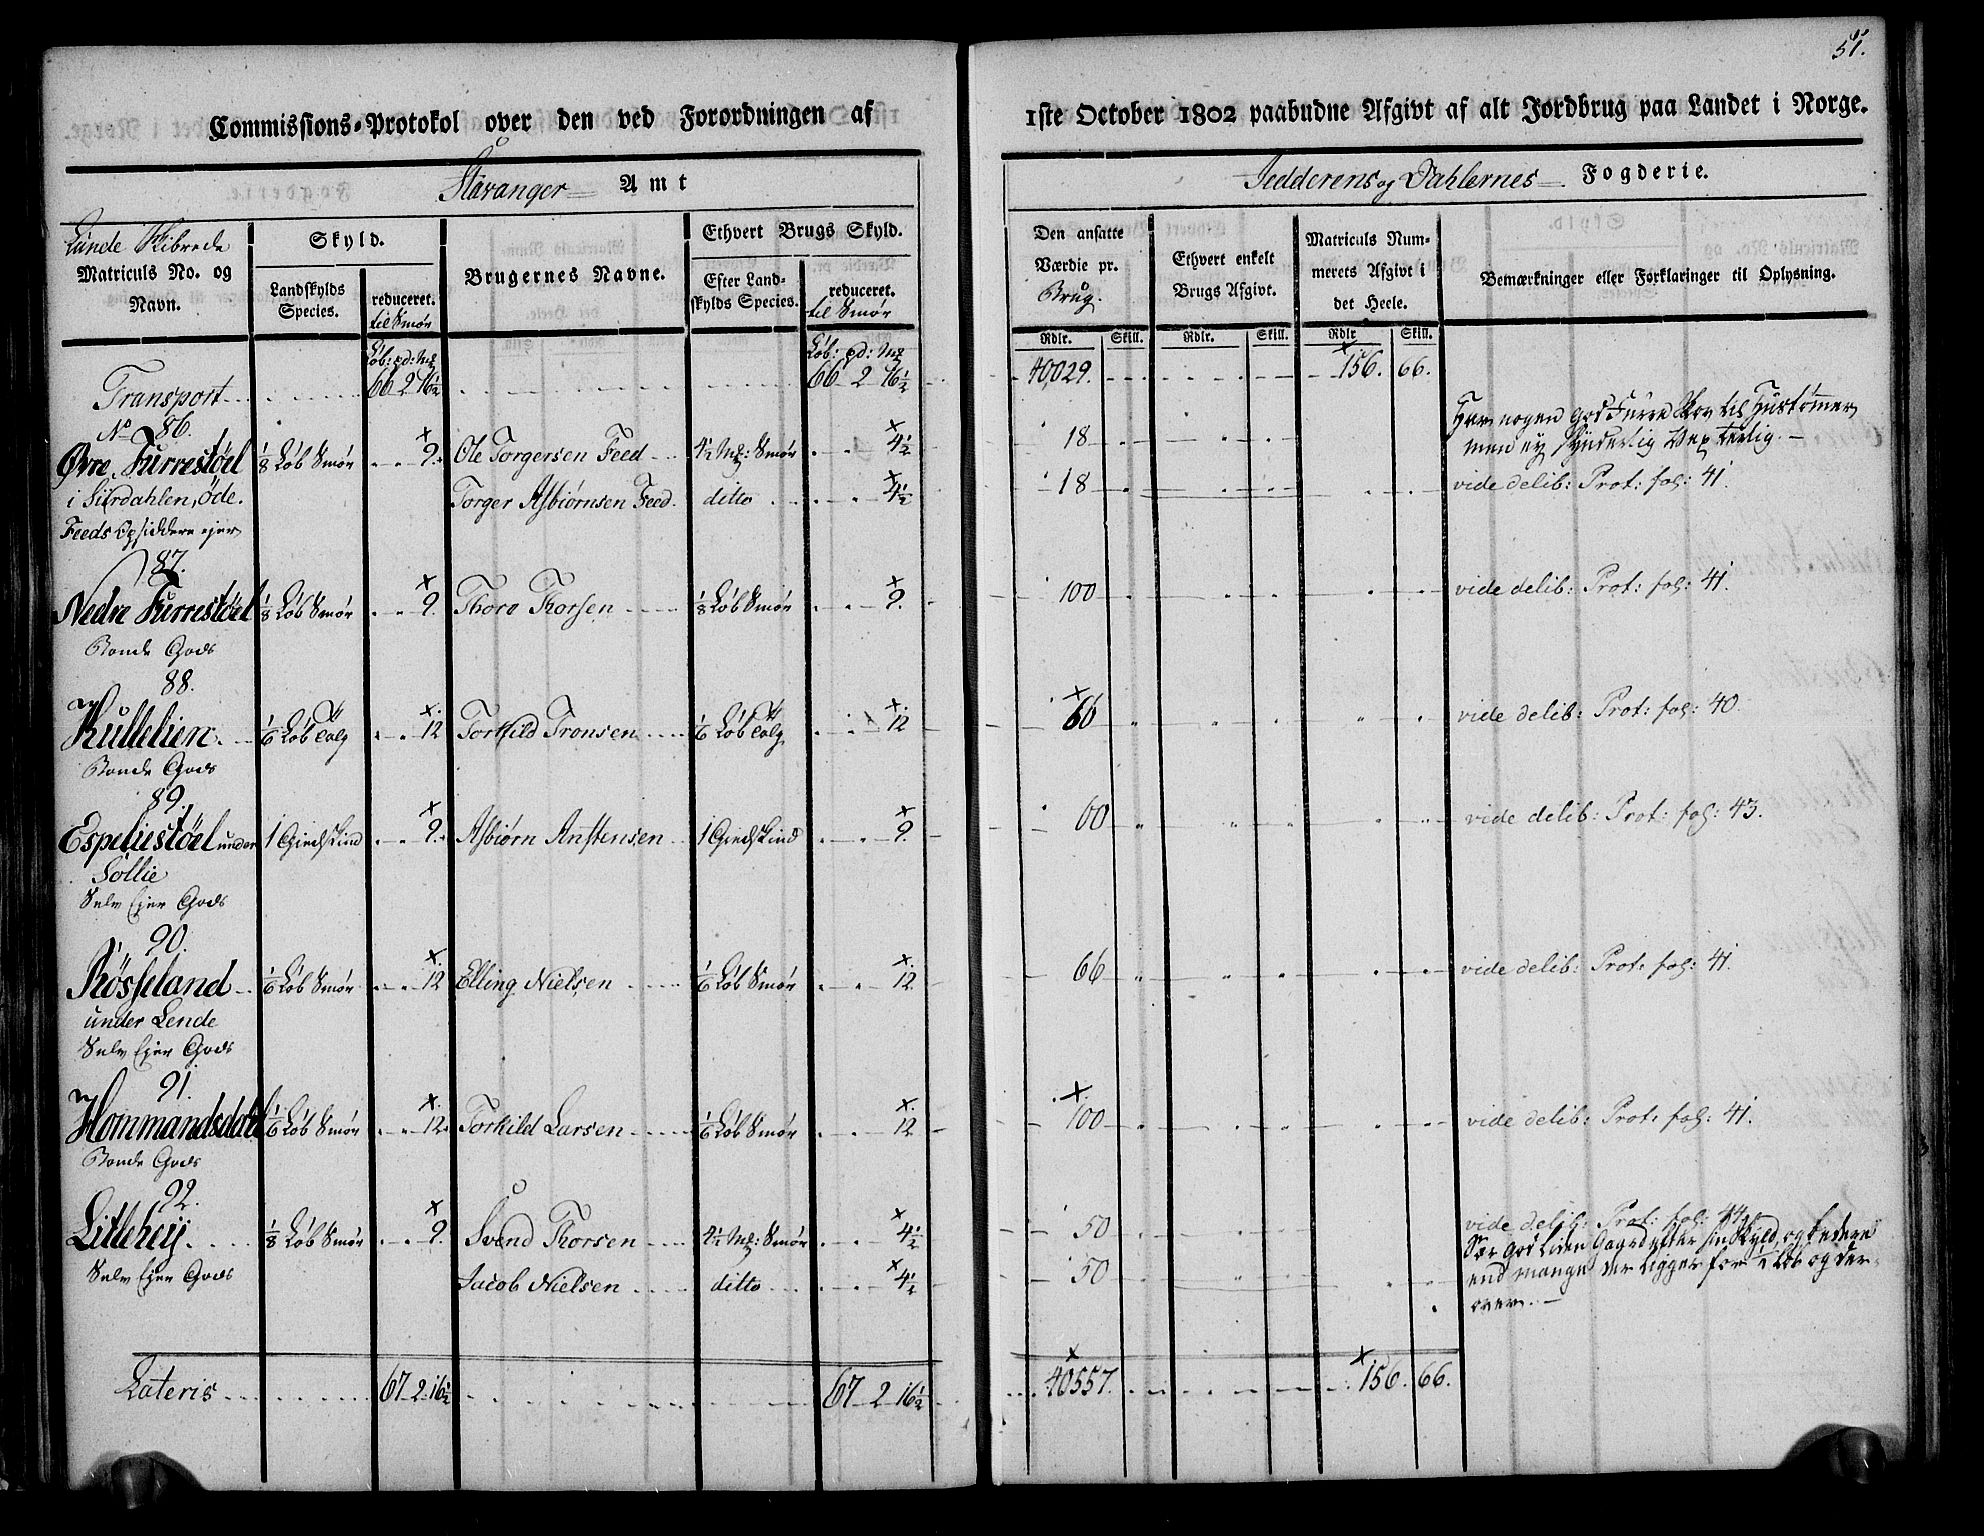 51.
Commissions-Protokol over den ved Forordningen af 1ste October 1802 paabudne Afgivt af alt Jordbrug paa Landet i Norge.
Stavanger Amt Jedderens og Dahlernes Fogderie.
Lunde Skibrede
Matriculs No. og Navn. Skyld. Landskylds Species. reduceret. til Smør Brugernes Navne. Ethvert Brugs Skyld. Efter Landskylds Species. reduceret. til Smør Den ansatte Værdie pr. Brug. Ethvert enkelt Brugs Afgivt. Matriculs Nummerets Afgivt i det Heele. Bemærkninger eller Forklaringer til Oplysning.
Løb: pd: Mk Løb: pd: Mk Rdlr. Skill. Rdlr. Skill. Rdlr Skill.
Transport 66 2 16½ 66 2 16½ 40,029. 156. 66.
No 86.
Øvre Furrestøel ⅛ Løb Smør 9. Ole Torgersen Feed 4½ Mk: Smør 4½ 18 Har nogen god Furre Skov til Hustømmer
men ey synderlig Vexterlig.
i Sirdahlen, øde. Torger Asbiørnsen Feed. ditto 4½ 18 vide delib: Prot: fol: 41.
Feeds Opsiddere ejer
87.
Nedre Furrestøel ⅛ Løb Smør 9. Thoro Thorsen ⅛ Løb Smør 9. 100 vide delib: Prot: fol: 41.
Bonde Gods
88.
Kullelien 1/6 Løb Talg 12 Torkild Tronsen 1/6 Løb Talg 12 60 vide delib: Prot: fol: 40.
Bonde Gods
89.
Espeliestøel under 1 Giedskind 9. Asbiørn Anstensen 1 Giedskind 9. 60 vide delib: Prot: fol: 43.
Sollie
Selv Ejer Gods
90.
Røsseland 1/6 Løb Smør 12 Elling Nielsen 1/6 Løb Smør 12 66 vide delib: Prot: fol: 41.
under Lende
Selv Ejer Gods
91.
Hommandsdal 1/6 Løb Smør 12. Torkild Larsen 1/6 Løb Smør 12 100 vide delib: Prot: fol: 41.
Bonde Gods
92.
Litleheij ⅛ Løb Smør 9. Svend Thorsen 4½ Mk: Smør 4½ 50 vide delib: Prot: fol: 44.
god Liden Gaard efter sin Skyld, og bedere
Selv Ejer Gods Jacob Nielsen ditto 4½ 50 end mange der ligger for ½ Løb og der-
over.
Lateris 67 2 16½ 67 2 16½ 40557. 156. 66.